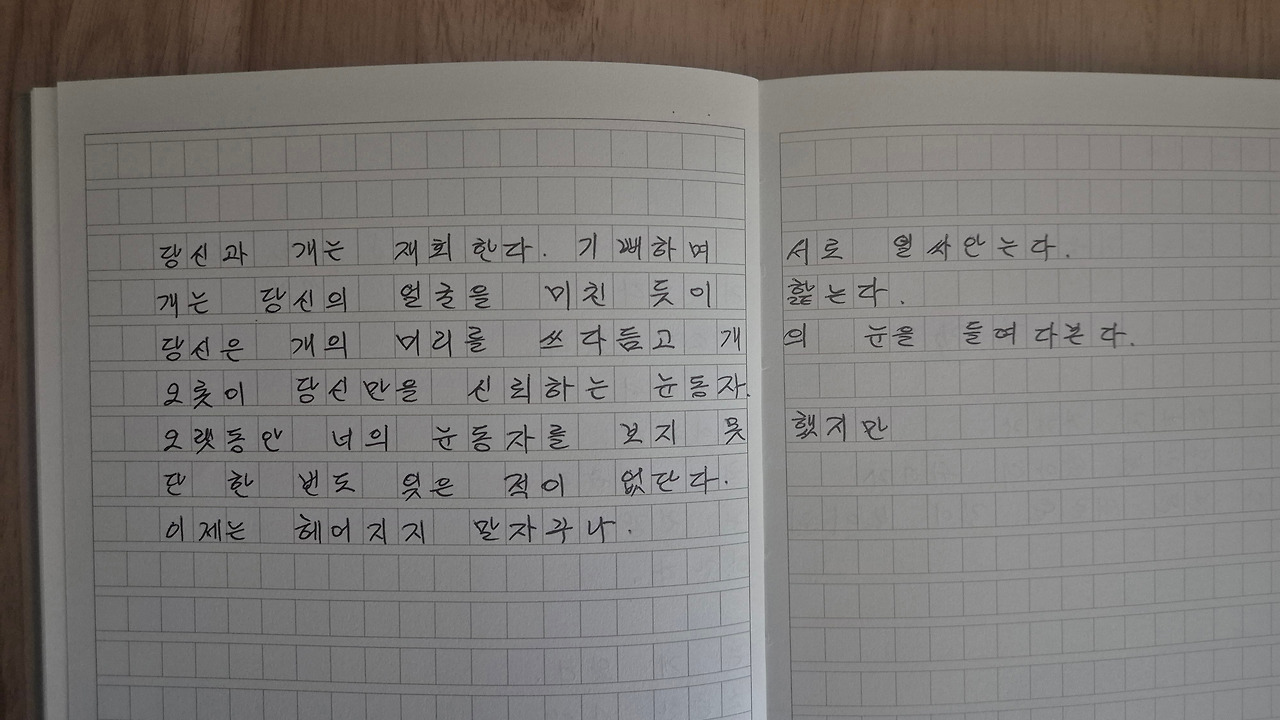 당신과 개는 재회한다. 기뻐하며 서로 얼싸안는다.
개는 당신의 얼굴을 미친 듯이 핥는다.
당신은 개의 머리를 쓰다듬고 개의 눈을 들여다본다.
오롯이 당신만을 신뢰하는 눈동자.
오랫동안 너의 눈동자를 보지 못했지만
단 한 번도 잊은 적이 없단다.
이제는 헤어지지 말자꾸나.